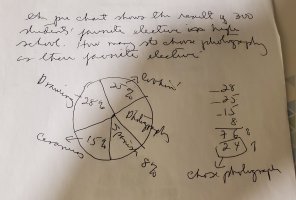 the pie chart shows the result of 300
students' favorite elective in high
school. How many sts choose photography
as their favorite elective
Drawing
28%
25%
Cooking
Photography
Spanish
8%
15%
Ceramics
28
25
15
8
76
24
chose photograph